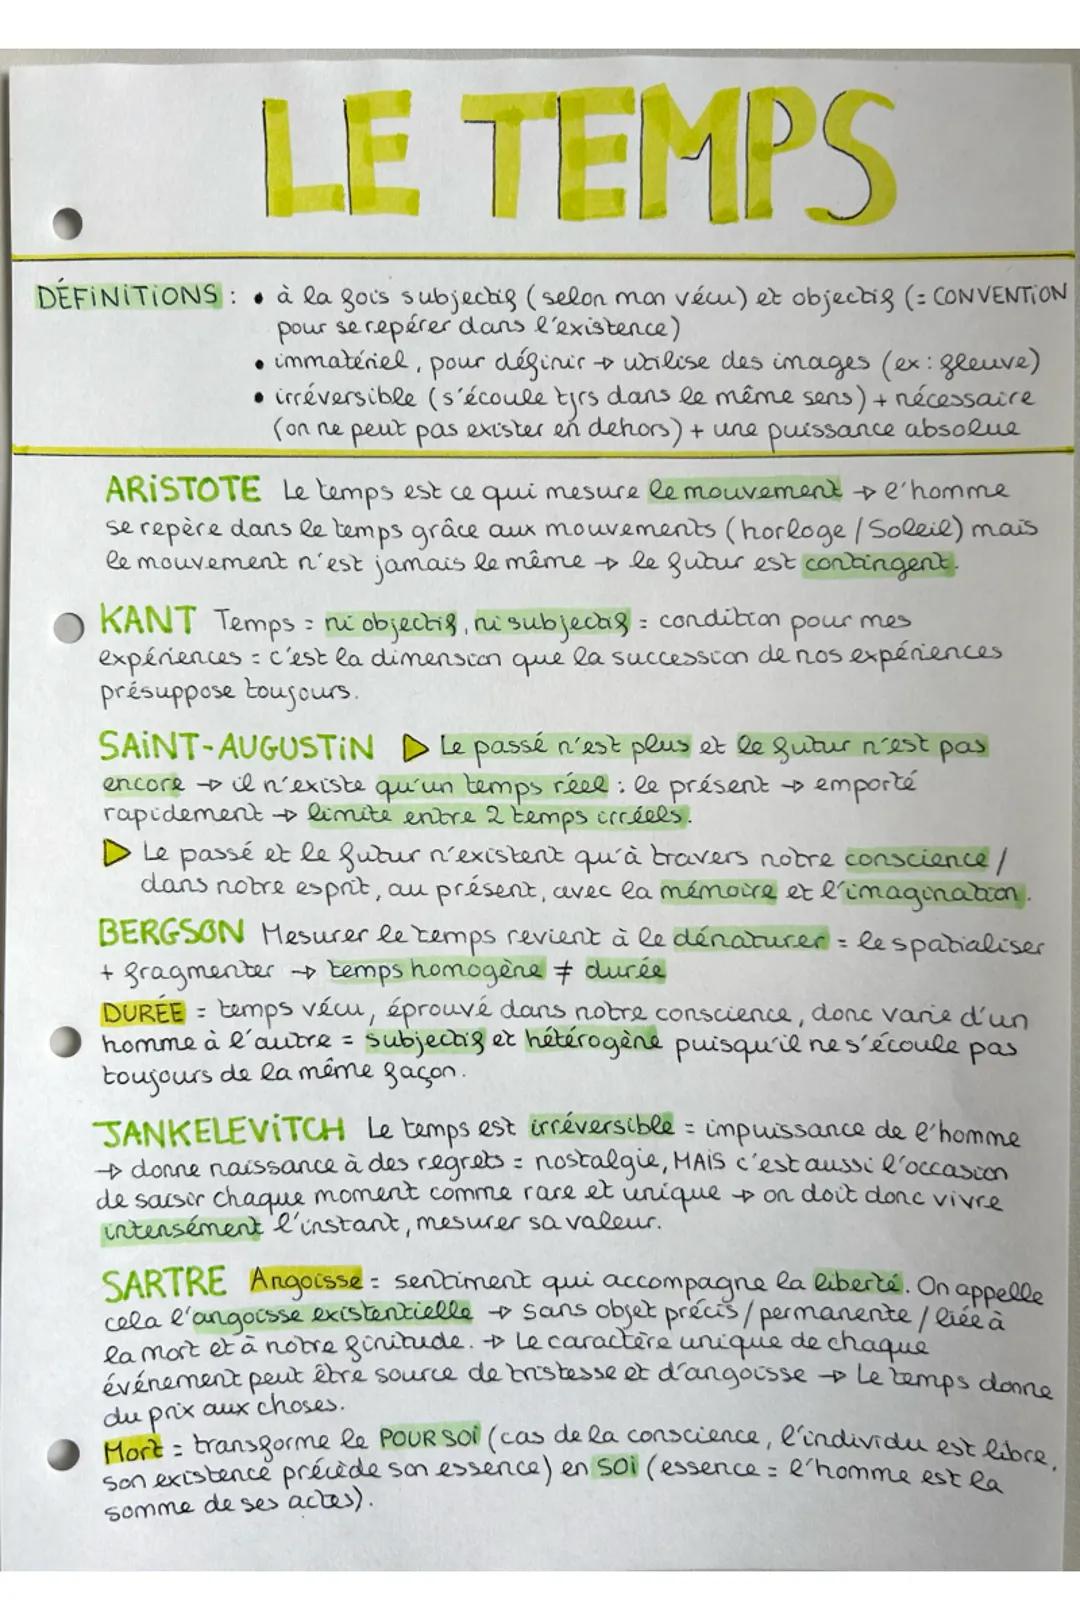 LE TEMPS
DÉFINITIONS : • à la fois subjectif (selon mon vécu) et objectif (= CONVENTION
pour se repérer dans l'existence)
• immatériel, pour définir → utilise des images (ex : fleuve)
• irréversible (s'écoule tjrs dans le même sens) + nécessaire
(on ne peut pas exister en dehors) + une puissance absolue
ARISTOTE Le temps est ce qui mesure le mouvement → l'homme
se repère dans le temps grâce aux mouvements (horloge / Soleil) mais
le mouvement n'est jamais le même → le futur est contingent.
KANT Temps = ni objectif, ni subjectif = condition pour mes
expériences = c'est la dimension que la succession de nos expériences
présuppose toujours.
SAINT-AUGUSTIN ▷ Le passé n'est plus et le futur n'est pas
encore → il n'existe qu'un temps réel : le présent → emporté
rapidement → limite entre 2 temps irréels.
▷ Le passé et le futur n'existent qu'à travers notre conscience /
dans notre esprit, au présent, avec la mémoire et l'imagination.
BERGSON Mesurer le temps revient à le dénaturer = le spatialiser
+ fragmenter → temps homogène ≠ durée
DURÉE = temps vécu, éprouvé dans notre conscience, donc varie d'un
homme à l'autre = subjectif et hétérogène puisqu'il ne s'écoule pas
toujours de la même façon.
JANKELEVITCH Le temps est irréversible = impuissance de l'homme
→ donne naissance à des regrets = nostalgie, MAIS c'est aussi l'occasion
de saisir chaque moment comme rare et unique → on doit donc vivre
intensément l'instant, mesurer sa valeur.
SARTRE Angoisse = sentiment qui accompagne la liberté. On appelle
cela l'angoisse existentielle → sans objet précis / permanente / liée à
la mort et à notre finitude. → Le caractère unique de chaque
événement peut être source de tristesse et d'angoisse → Le temps donne
du prix aux choses.
Mort = transforme le POUR SOI (cas de la conscience, l'individu est libre,
son existence précède son essence) en SOI (essence = l'homme est la
somme de ses actes).